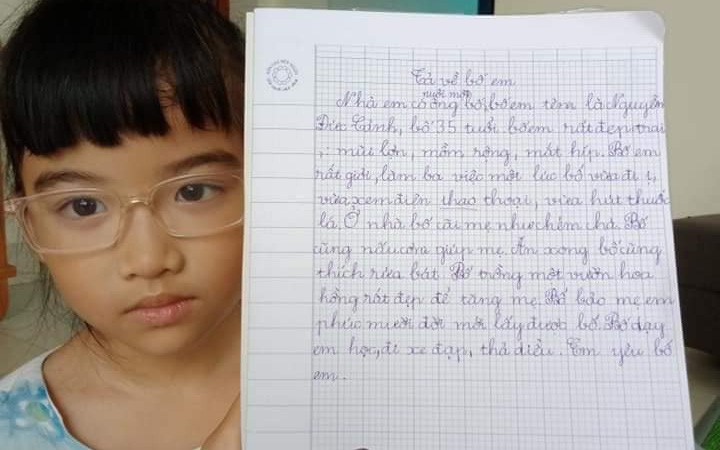 Tả về bố em
Nhà em có ông bố, bố em tên là Nguyễn
người một
Đức Cảnh, bố 35 tuổi bố em rất đẹp trai
,: mũi lợn, mồm rộng, mắt híp. Bố em
rất giỏi, làm ba việc một lúc bố vừa đi ị,
vừa xem điện thao thoại, vừa hút thuốc
lá. Ở nhà bố cãi mẹ như chém chả. Bố
cũng nấu cơm giúp mẹ. Ăn xong bố cũng
thích rửa bát. Bố trồng một vườn hoa
hồng rất đẹp để tặng mẹ. Bố bảo mẹ em
phúc mười đời mới lấy được bố. Bố dạy
em học, đi xe đạp, thả diều. Em yêu bố
em.